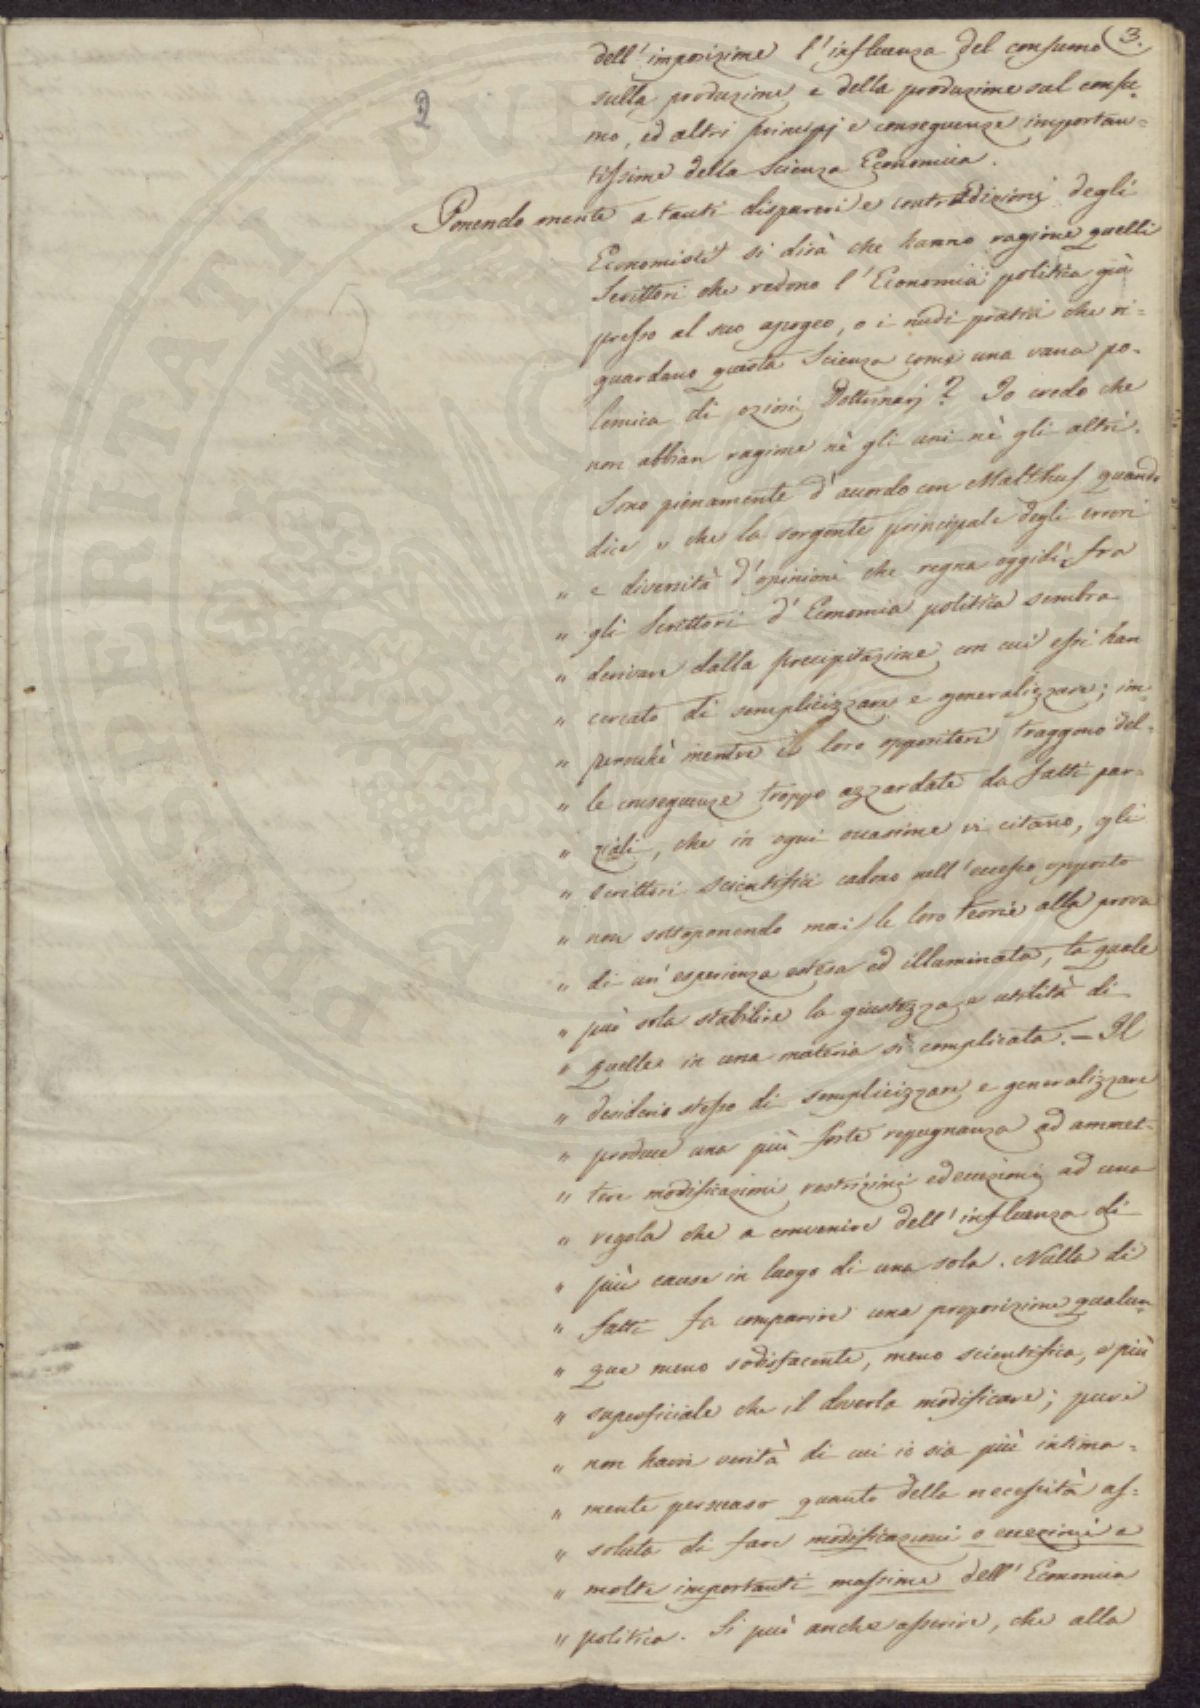 3.
2
dell'imposizione l'influenza del consumo
sulla produzione e della produzione sul consu-
mo, ed altri principj e conseguenze importan-
tissime della Scienza Economica.
Ponendo mente a tanti dispareri e contradizioni degli
Economisti si dirà che hanno ragione quelli
Scrittori che vedono l'Economia politica già
presso al suo apogeo, o i nudi pratici che ri-
guardano questa Scienza come una vana po-
lemica di oziosi Dottrinarj? Io credo che
non abbian ragione nè gli uni nè gli altri.
Sono pienamente d'accordo con Malthus quando
dice " che la sorgente principale degli errori
" e diversità d'opinioni che regna oggidì fra
" gli Scrittori d'Economia politica sembra
" derivare dalla precipitazione con cui essi han
" cercato di semplicizzare e generalizzare; im-
" perocchè mentre i loro oppositori traggono del-
" le conseguenze troppo azzardate da fatti par-
" ziali, che in ogni occasione vi citano, gli
" scrittori scientifici cadono nell'eccesso opposto
" non sottoponendo mai le loro teorie alla prova
" di un'esperienza estesa ed illuminata, la quale
" può sola stabilire la giustezza e utilità di
" quelle in una materia sì complicata. — Il
" desiderio stesso di semplicizzare e generalizzare
" produce una più forte repugnanza ad ammet-
" tere modificazioni restrizioni ed eccezioni ad una
" regola che a convenire dell'influenza di
" più cause in luogo di una sola. Nulla di
" fatti fa comparire una proposizione qualun-
" que meno sodisfacente, meno scientifica, e più
" superficiale che il doverla modificare; pure
" non havvi verità di cui io sia più intima-
" mente persuaso quanto della necessità as-
" soluta di fare modificazioni o eccezioni a
" molte importanti massime dell'Economia
" politica. Si può anche asserire, che alla